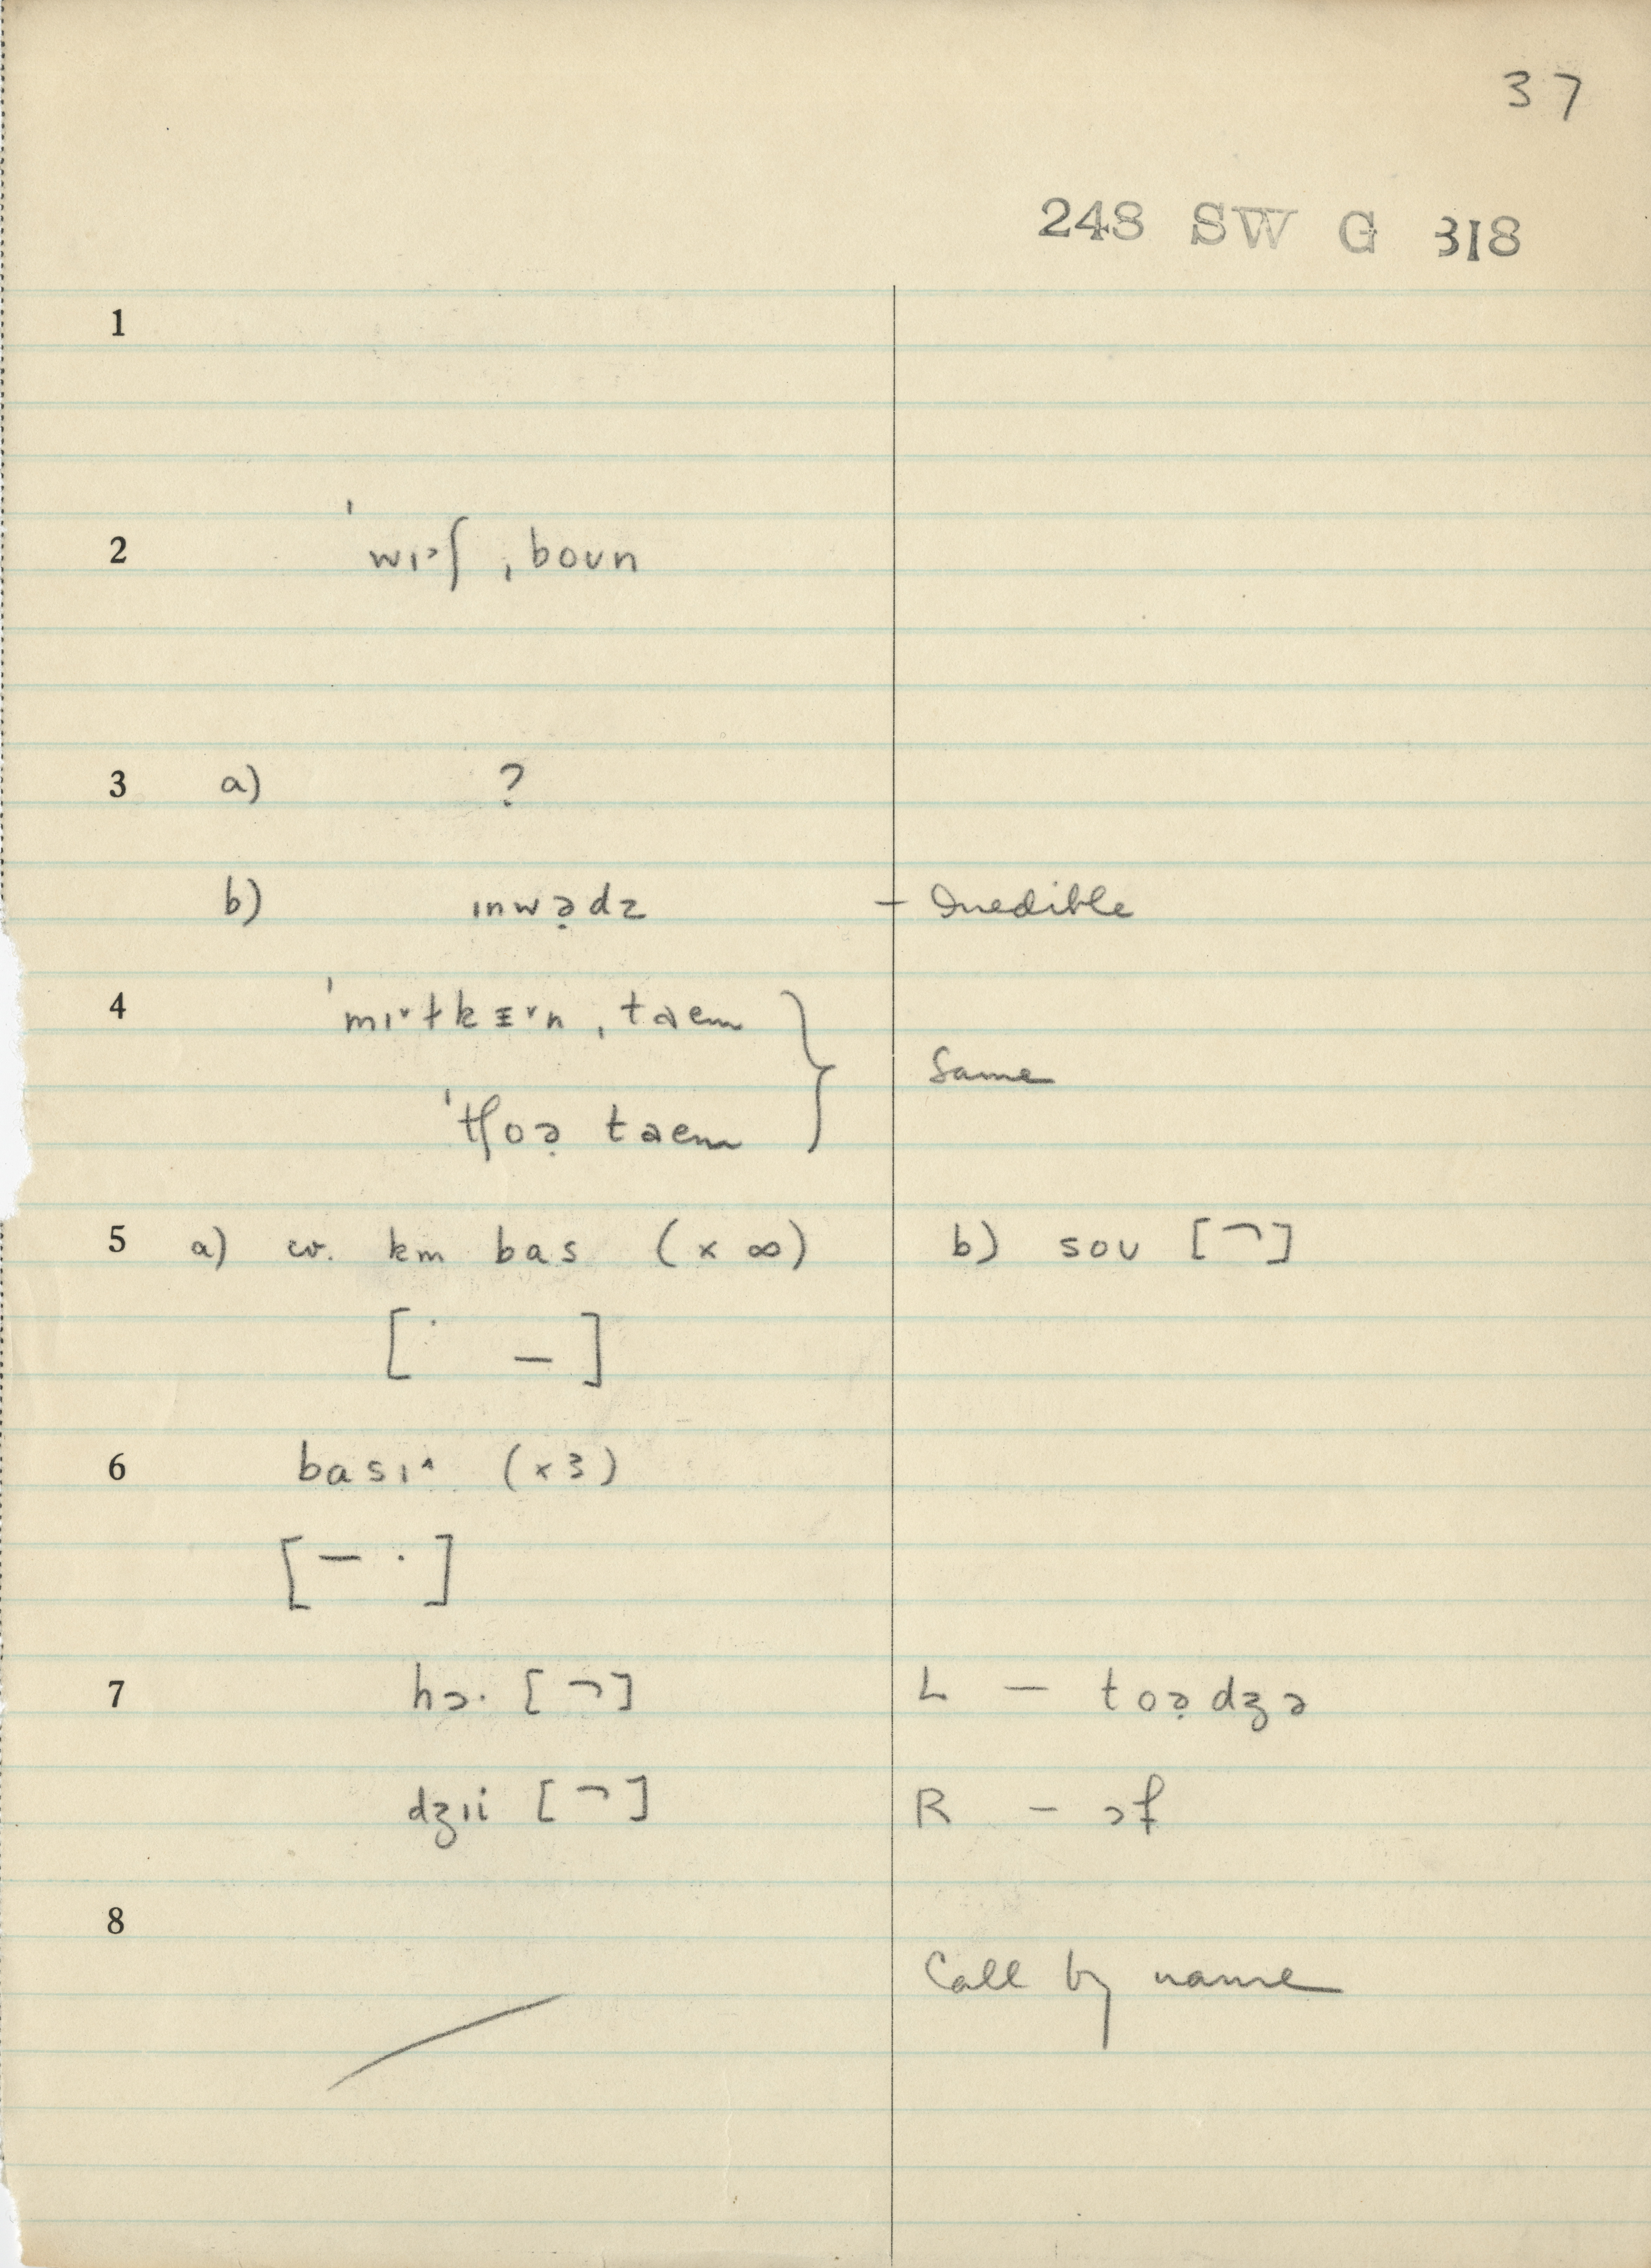 37
248 SW G 318
1
2 ˈwɪ˃ʃ ˌboʊn
3 a) ?
b) ɪnwə̣dz – Inedible
4 ˈmɪ˅ɫkɪ˅n ˌtaem
Same
ˈtʃoə̣ taem
5 a) cv. km bas (x ∞) b) soʊ [¬]
[˙ _]
6 basɪ^ (x3)
[– ·]
7 hɔ· [¬] L – toə̣dʒə
dʒɪi [¬] R – ɔf
8
Call by name